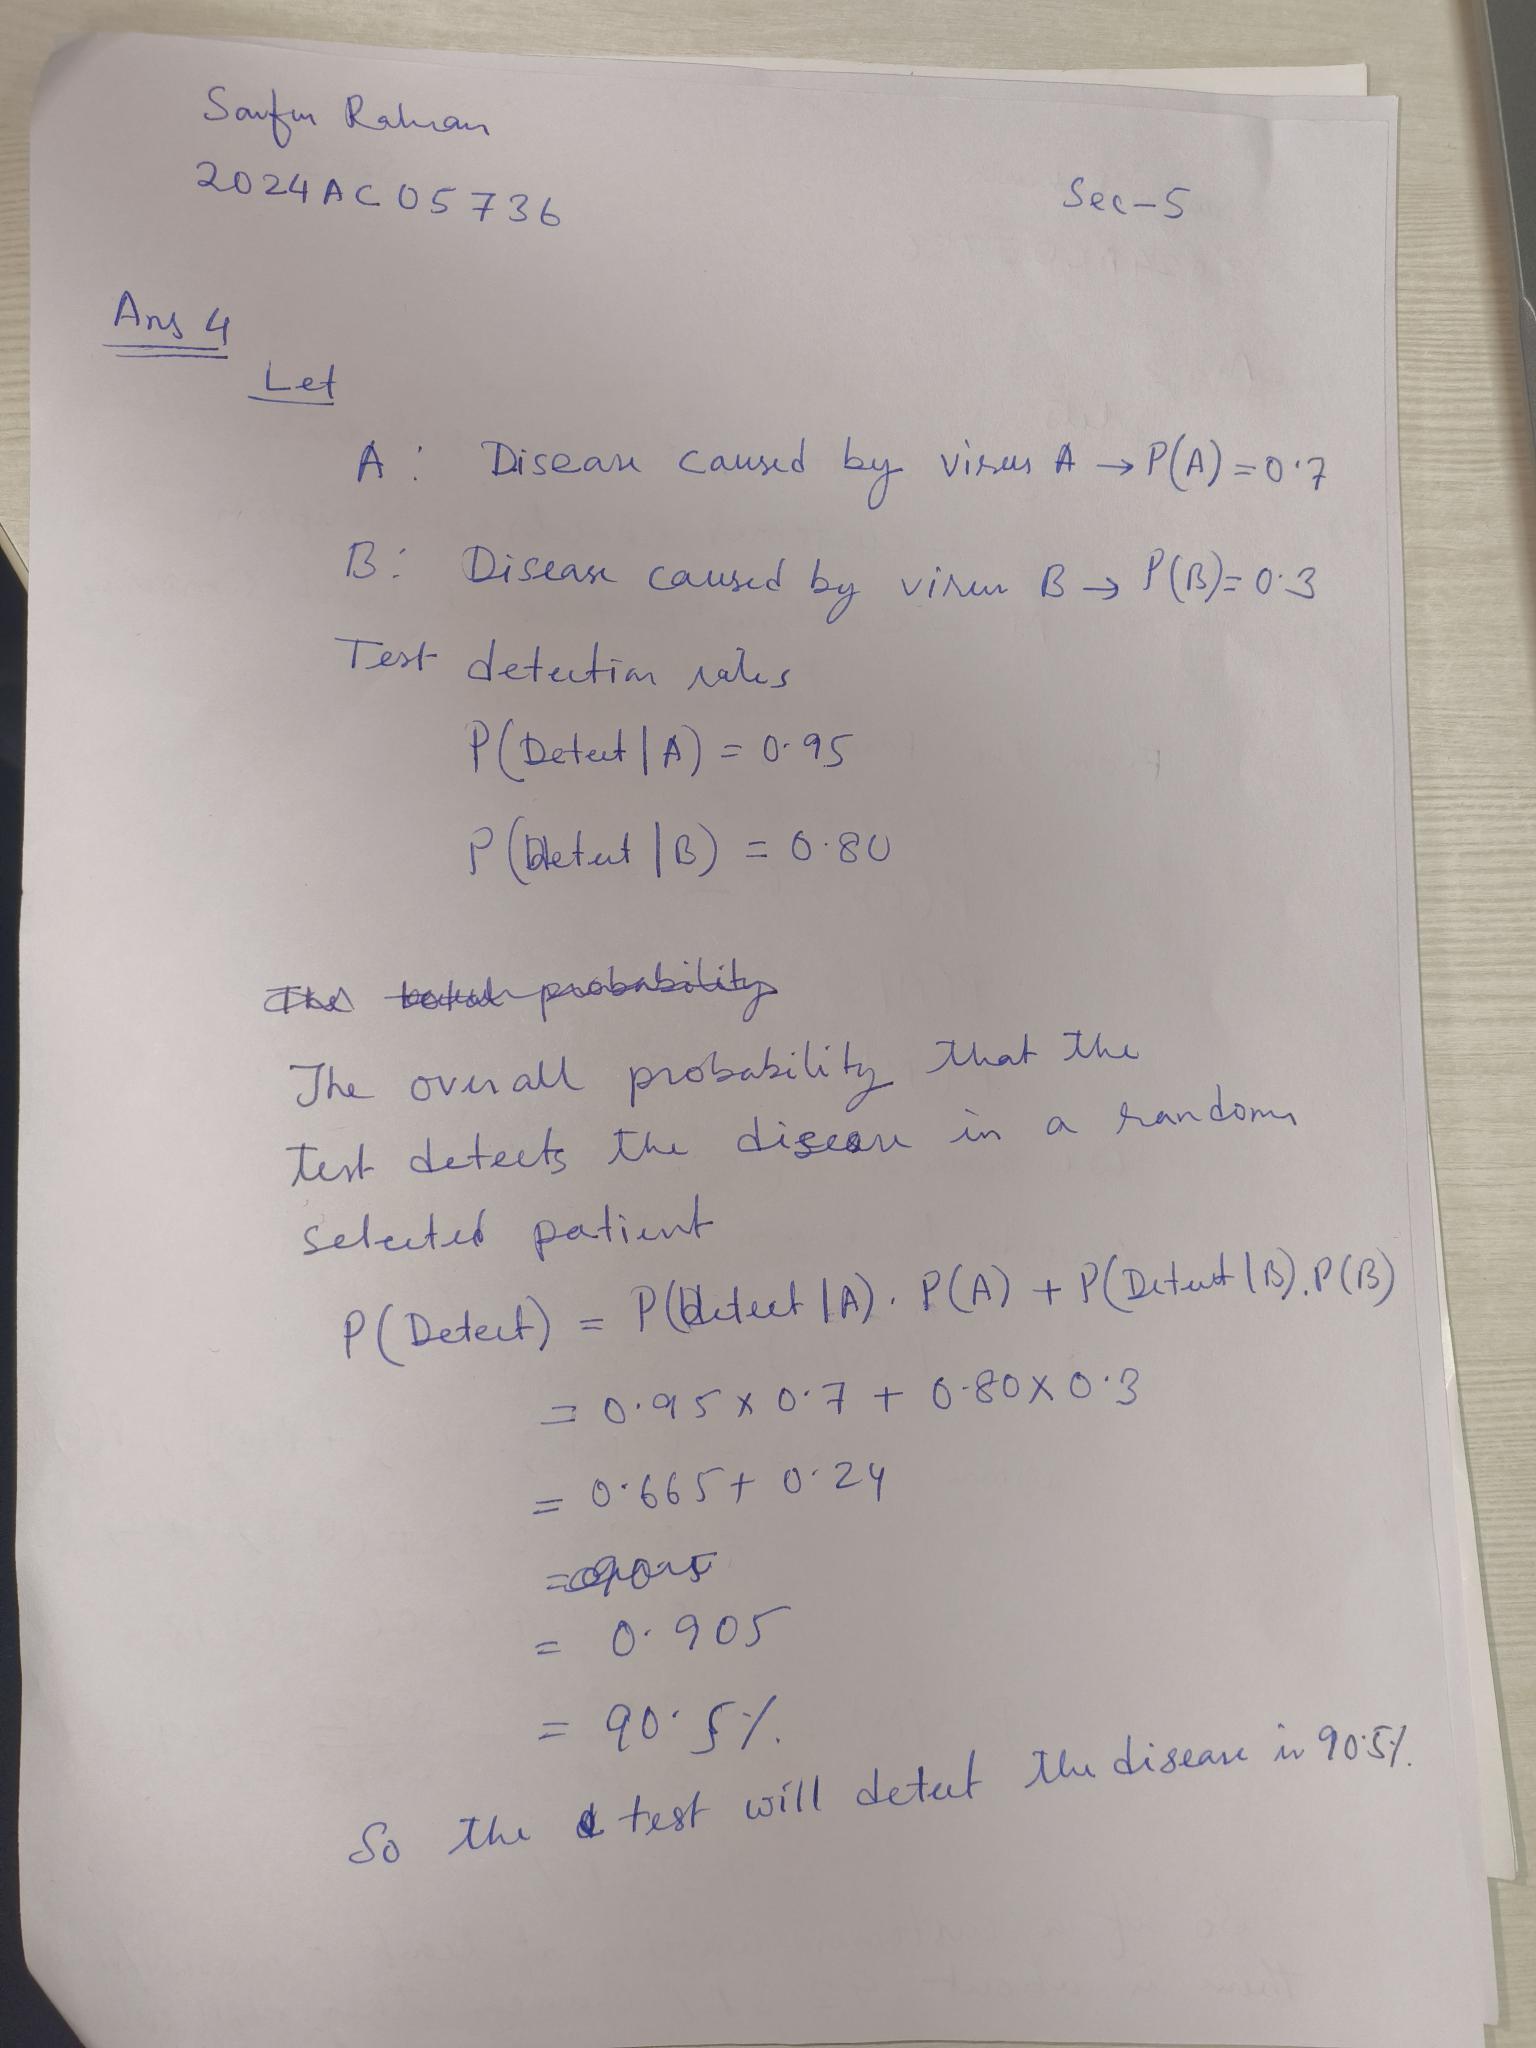 Rahman
2024AC05736
Sec-5
Ans 4
Let
A: Disease caused by virus A → P(A) = 0.7
B: Disease caused by virus B → P(B) = 0.3
Test detection rates
P(Detect | A) = 0.95
P(Detect | B) = 0.80
The total probability
The overall probability that the
test detects the disease in a random
selected patient
P(Detect) = P(Detect | A) . P(A) + P(Detect | B) . P(B)
= 0.95 x 0.7 + 0.80 x 0.3
= 0.665 + 0.24
= 0.905
= 90.5%.
So the test will detect the disease in 90.5%.